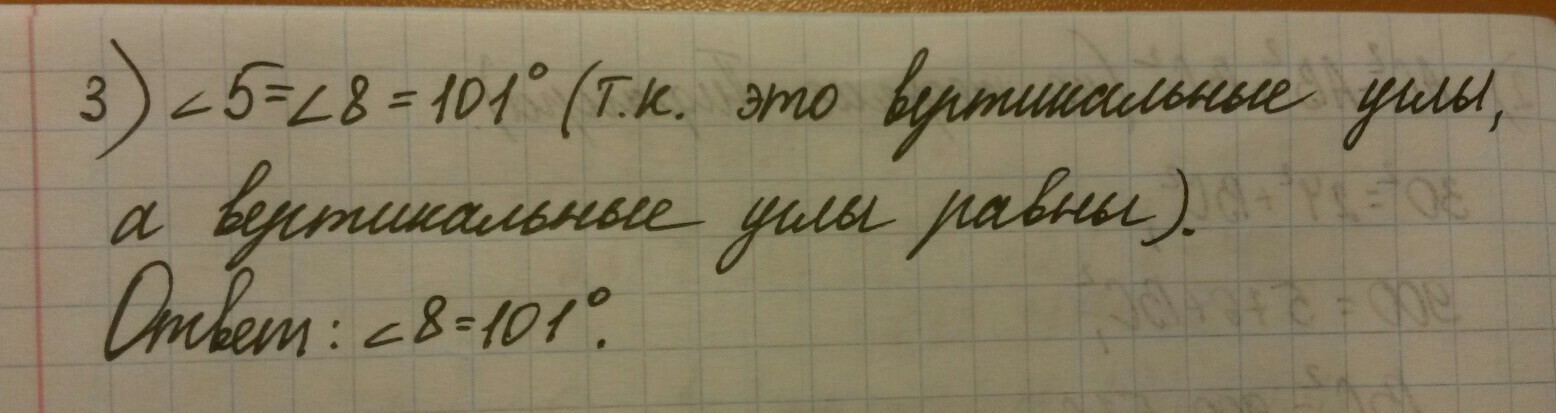 3) ∠5=∠8=101° (т.к. это вертикальные углы,
а вертикальные углы равны).
Ответ: ∠8=101°.